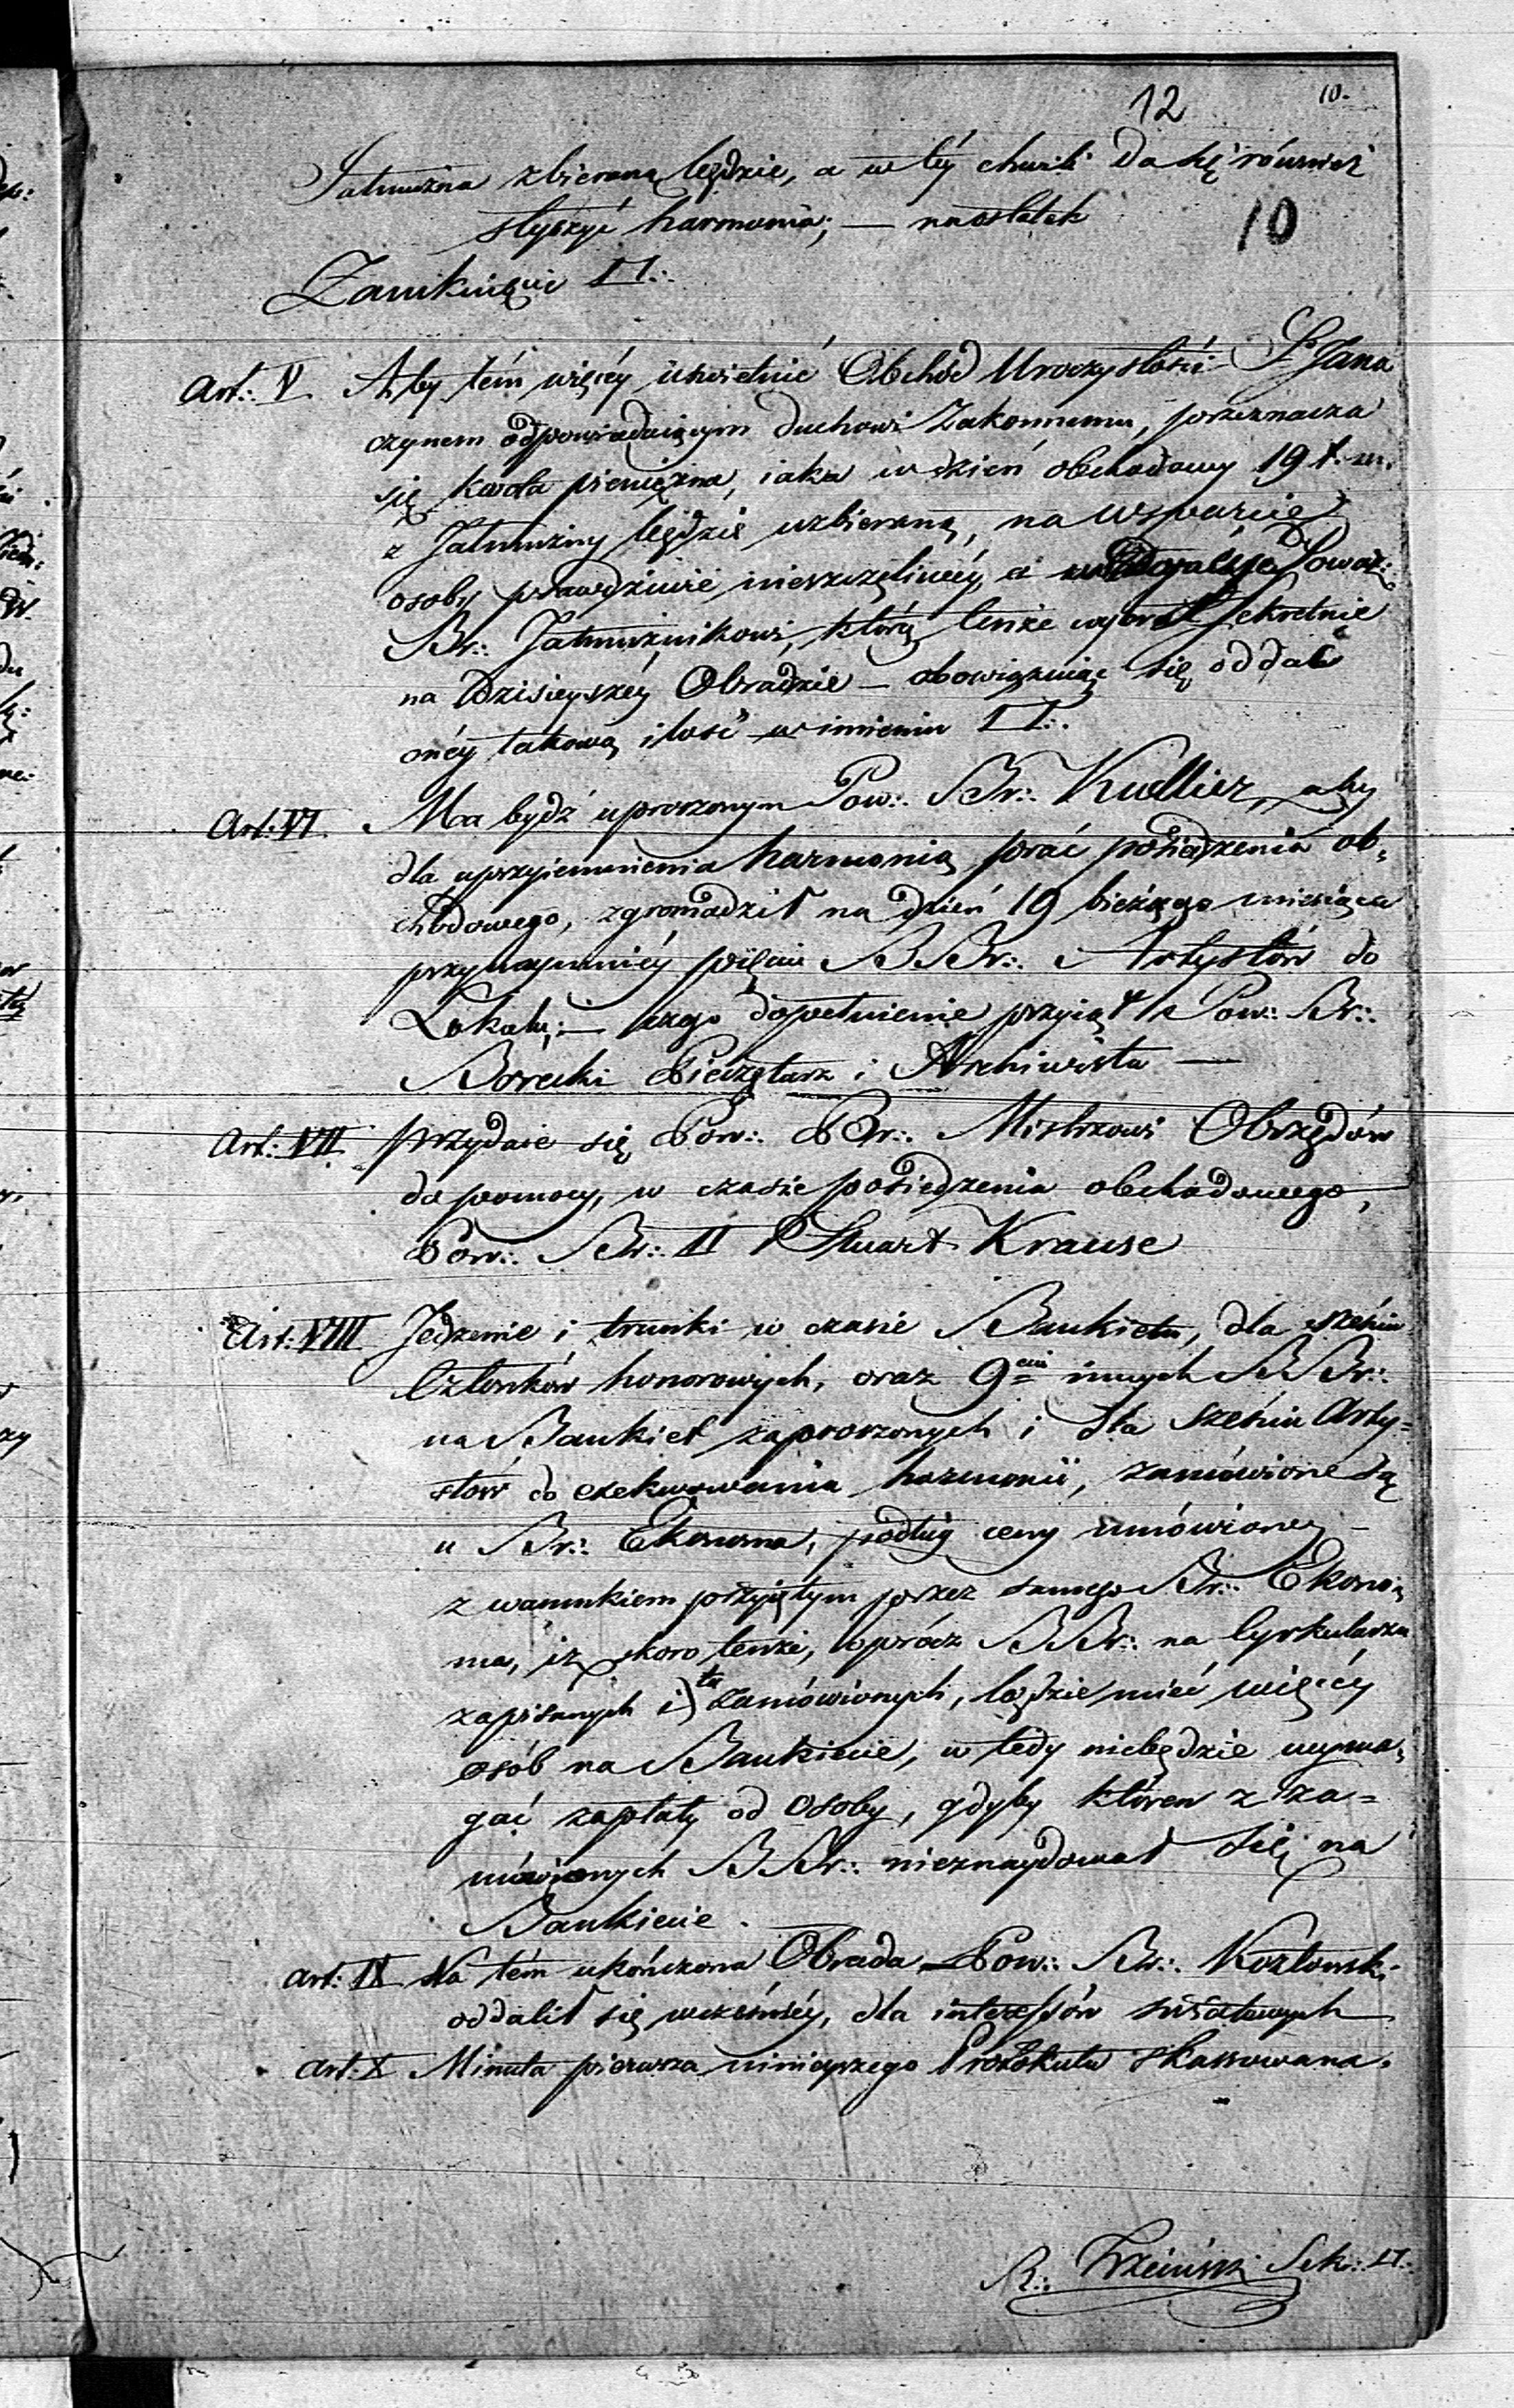 12 10.
Jałmużna zbieraną będzie, a w téy chwili da się również
słyszyć harmonia; — naostatek
10
Zamknięcie □.:
Art: V Aby tém więcéy uświetnić Obchód Uroczystości S. Jana
czynem odpowiadaiącym duchowi Zakonnemu, przeznacza
się kwota pieniężna, iaka w dzień obchodowy 19 t. m.
z Jałmużny będzie uzbieraną, na wsparcie
osoby prawdziwie nieszczęśliwéy, a Powoł:
Br.: Jałmużnikowi, którą tenże wybrał sekretnie
na dzisieyszéy Obradzie — obowiązuiąc się oddać
onéy takową ilość w imieniu □.:
Art: VI Ma bydź uproszonym Pow.: Br.: Kudlicz, aby
dla uprzyiemnienia harmonią prać posiedzenia ob:
chodowego, zgromadził na dzień 19 bieżącego miesiąca
przynaymniéy pięciu BBr.: Artystów do
Lokalu; — czego dopełnienie przyiął Pow: Br.:
Borecki Pieczętarz i Archiwista —
Art: VII Przydaie się Pow.: Br.: Mistrzowi Obrzędów
do pomocy, w czasie posiedzenia obchodowego,
Pow.: Br.: II Stuart Krause
Art: VIII Jedzenie i trunki w czasie Bankietu, dla sześciu
Członków honorowych, oraz 9ciu innych BBr.:
na Bankiet zaproszonych i dla sześciu Arty-
stów do exekwowania harmonii, zamówione są
u Br.: Ekonoma, podług ceny umówioney —
z warunkiem przyiętym przez samego Br.: Ekono:
ma, iż skoro tenże, oprócz BBr.: na Cyrkularzu
zapisanych i tu zamówionych, będzie mieć więcéy
osób na Bankiecie, w tedy niebędzie wyma:
gać zapłaty od osoby, gdyby któren z za-
mówionych BBr.: nieznaydował się na
Bankiecie.
Art: IX Na tém ukończona Obrada Pow.: Br.: Kozłowski
oddalił się wcześniéy, dla interessów światowych
Art: X Minuta pierwsza ninieyszego Protokułu skassowana.
Sek.: □.: